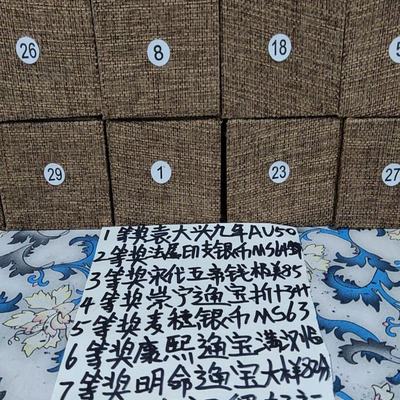 26 8 18 5
29 1 23 27
1等奖袁大头九年AU50
2等奖法属印支银币MS64
3等奖宋代五帝钱极美85
4等奖崇宁通宝折十
5等奖麦穗银币MS63
6等奖康熙通宝满汉
7等奖明命通宝大样82分